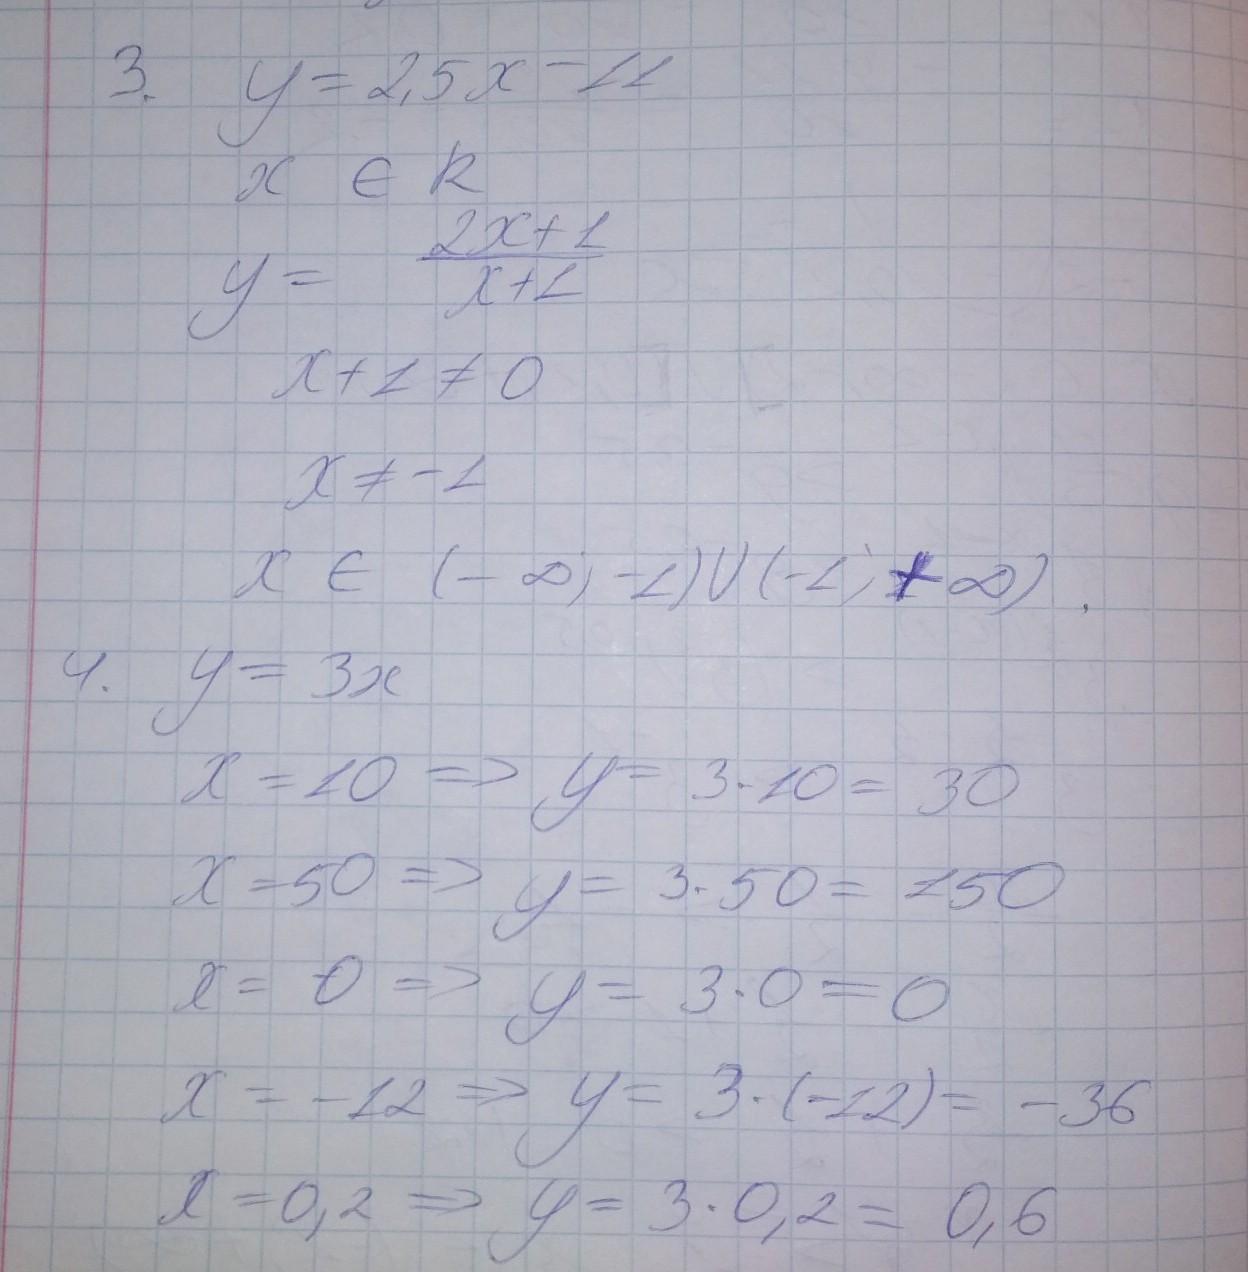 3. y = 2,5x - 11
x ∈ R
y = \frac{2x+1}{x+1}
x + 1 ≠ 0
x ≠ -1
x ∈ (-∞; -1) ∪ (-1; +∞).
4. y = 3x
x = 10 => y = 3·10 = 30
x = 50 => y = 3·50 = 150
x = 0 => y = 3·0 = 0
x = -12 => y = 3·(-12) = -36
x = 0,2 => y = 3·0,2 = 0,6